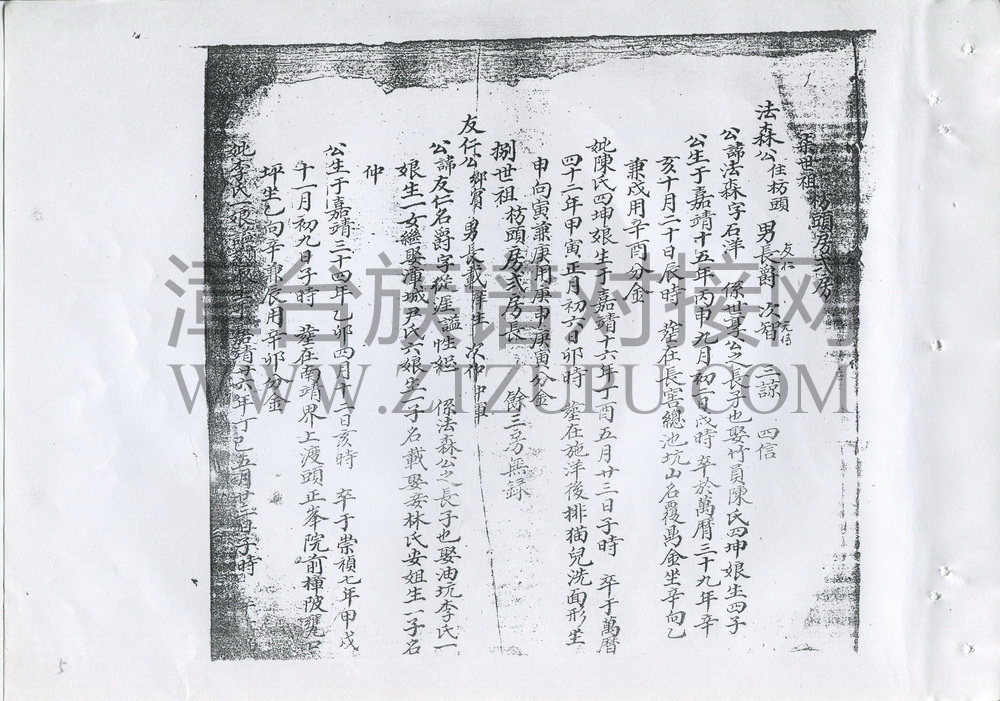 柒世祖枋頭房弍房
法森公住枋頭 男長爵友仁 次智 三諒 四信
公諱法森字石洋 係世㝵公之長子也娶竹員陳氏四坤娘生四子
公生于嘉靖十五年丙申九月初一日戌時卒於萬曆三十九年辛
亥十月二十日辰時 塟在長寨總池坑山名覆鼎金坐辛向乙
兼戌用辛酉分金
妣陳氏四坤娘生于嘉靖十六年丁酉五月廿三日子時 卒于萬曆
四十二年甲寅正月初六日卯時 塟在施洋後排猫兒洗面形坐
申向寅兼庚用庚申庚寅分金
捌世祖枋頭房弍房長 餘三房無録
友仁公鄉賓 男長載庠生 次仲
公諱友仁名爵字從涯謚性 係法森公之長子也娶油坑李氏一
娘生一女繼娶浦城尹氏六娘生一子名載娶妾林氏安姐生一子名
仲
公生于嘉靖三十四年乙卯四月十二日亥時 卒于崇禎七年甲戌
十一月初九日子時 塟在南靖界上渡頭正峯院前
坪坐乙向辛兼辰用辛卯分金
妣李氏一娘 嘉靖廿六年丁 五月廿 日子時
漳台族谱对接网
WWW.ZTZUPU.COM
5